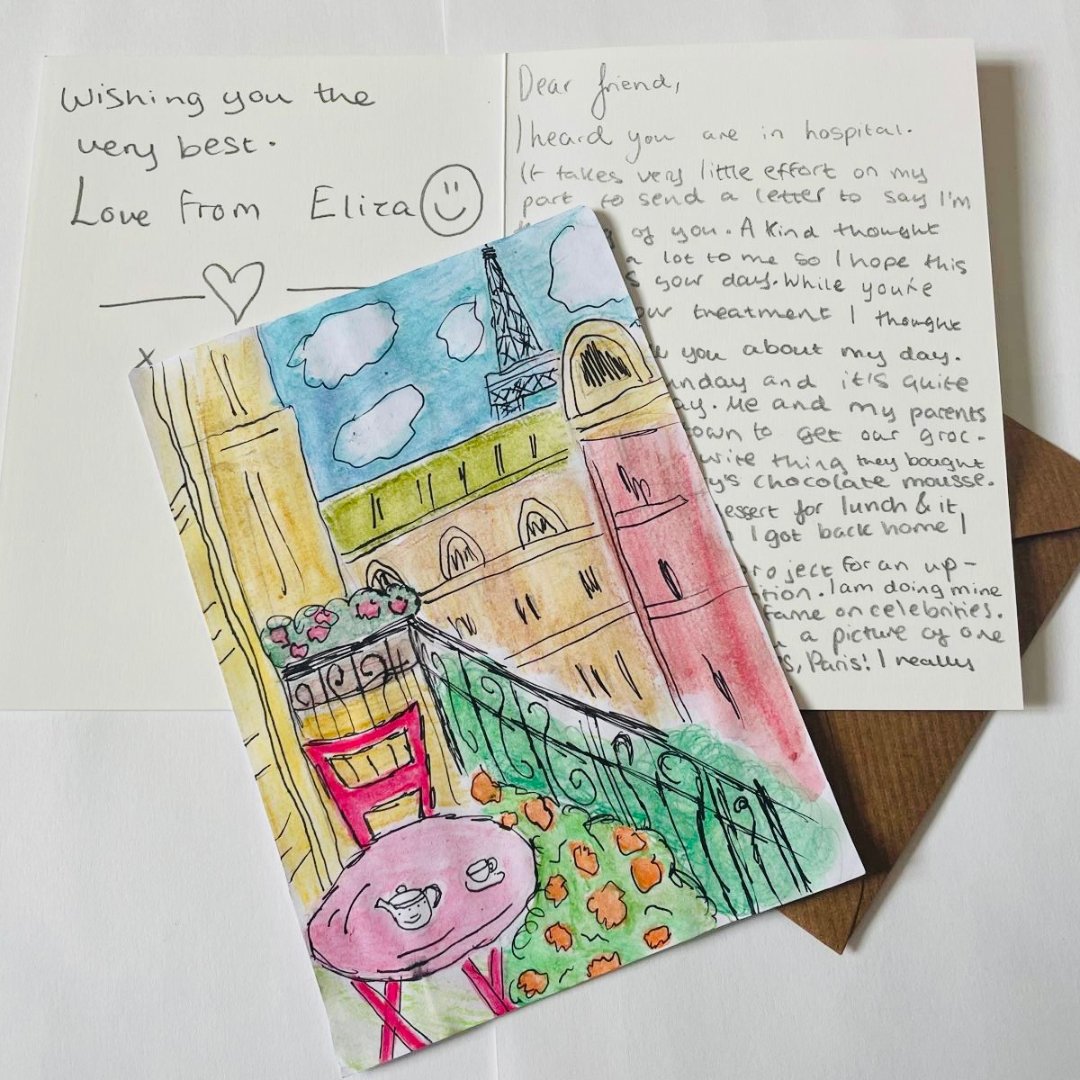 Wishing you the
very best.
Love From Eliza
x
Dear friend,
I heard you are in hospital.
It takes very little effort on my
part to send a letter to say I'm
of you. A kind thought
a lot to me so I hope this
your day. While you're
treatment I thought
you about my day.
and it's quite
Me and my parents
to get our groc-
thing they bought
chocolate mousse.
for lunch & it
I got back home I
project for an up-
I am doing mine
on celebrities.
a picture of one
Paris! I really